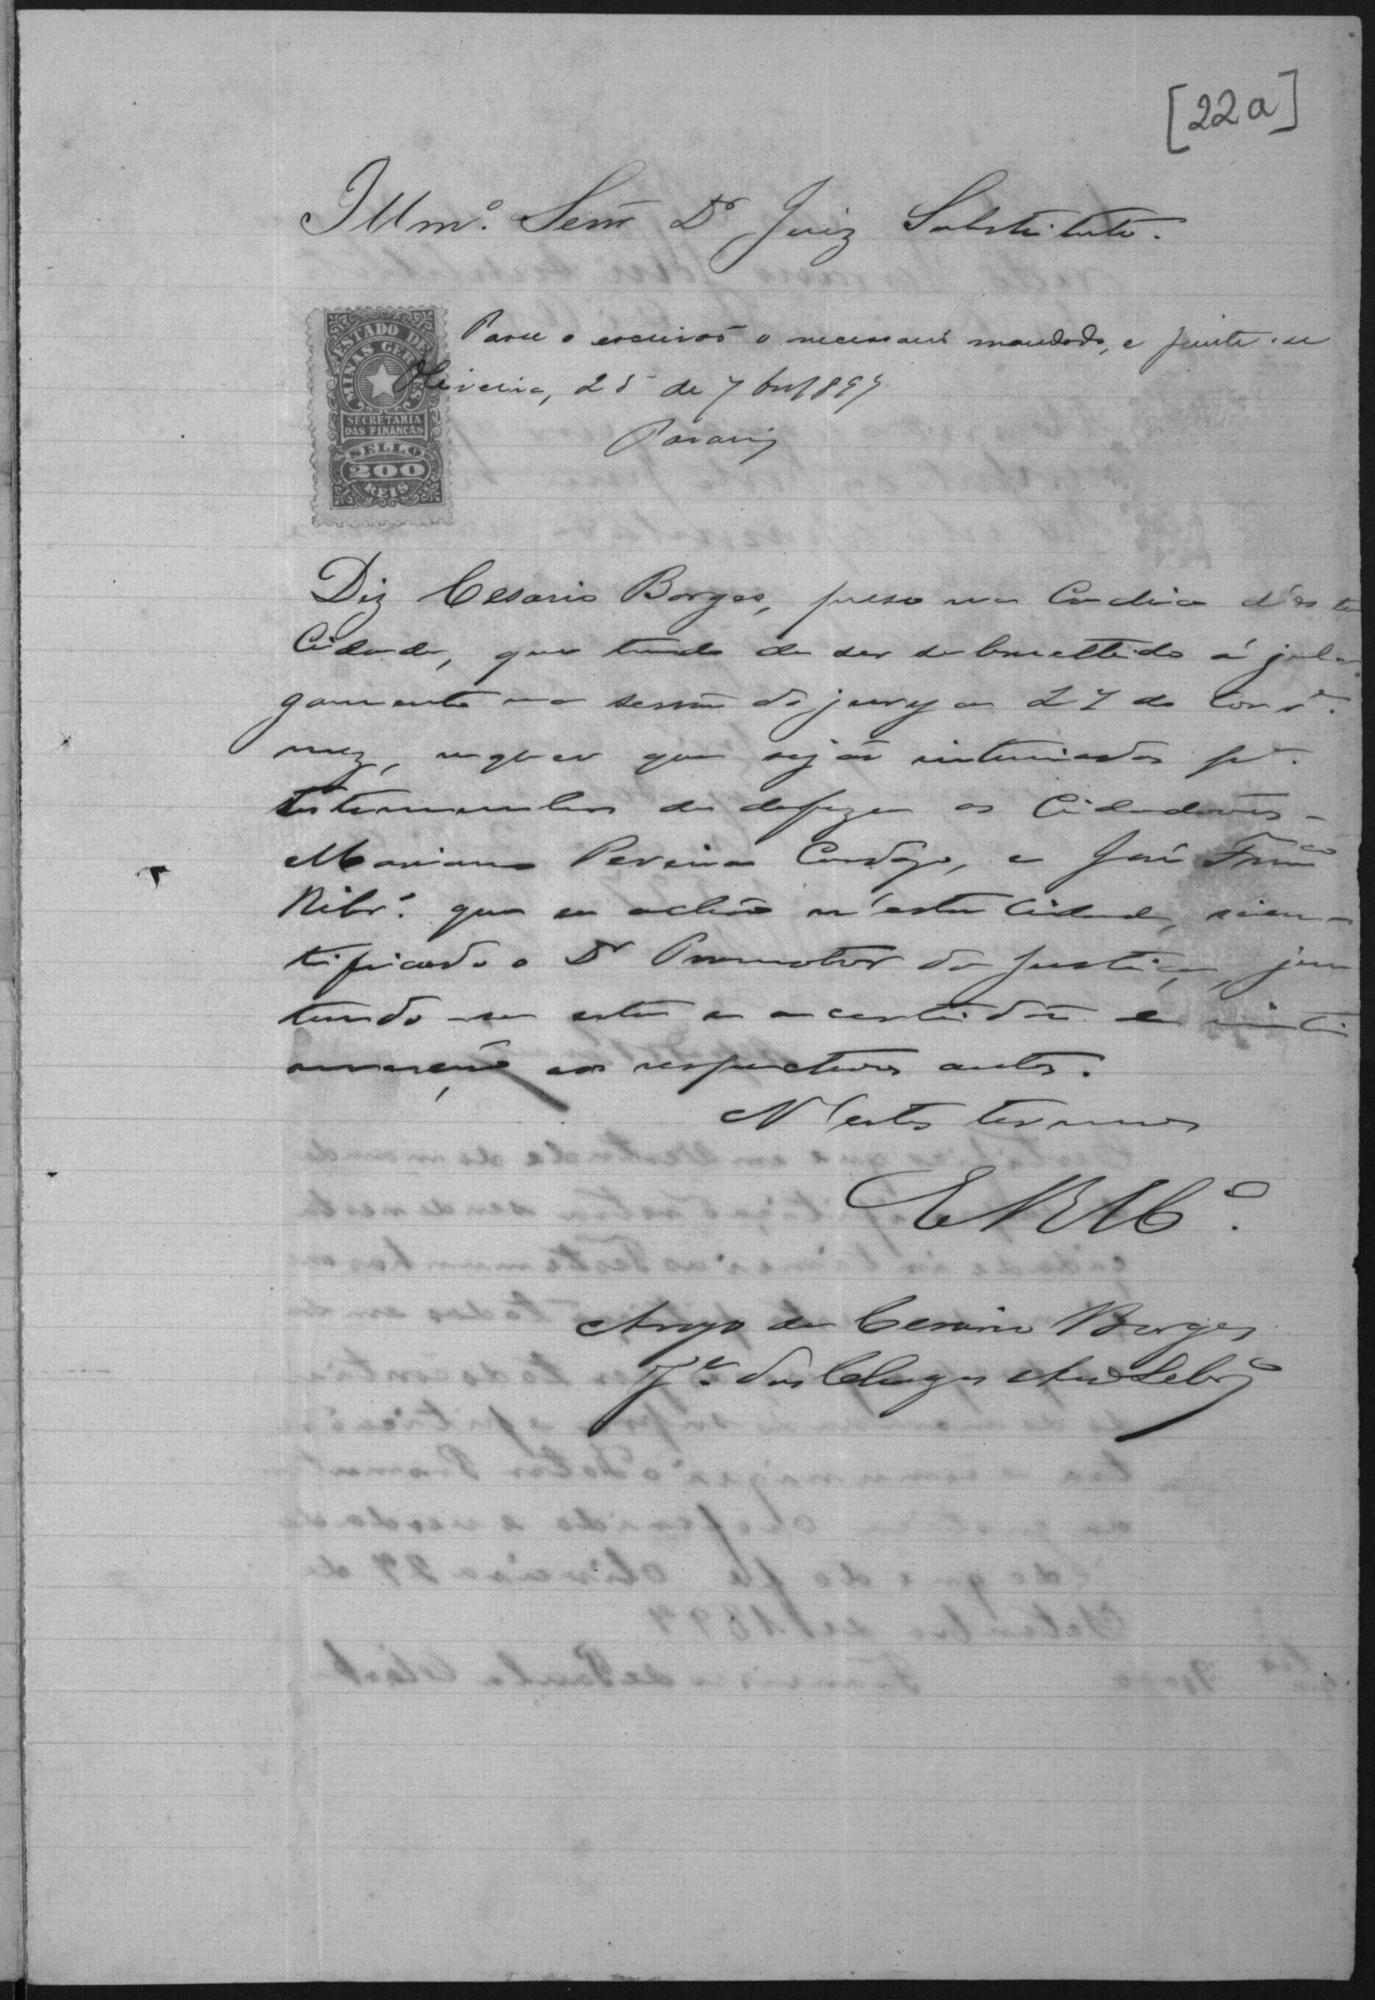 [22a]
Illmº. Senr. Dr Juiz Substituto.
ESTADO DE
MINAS GERAES
SECRETARIA
DAS FINANÇAS
SELLO
200
REIS
Passe o escrivão o necessario mandado, e junte-se
Oliveira, 25 de 7brº 1897
Diz Cesario Borges, preso na Cadeia d'esta
Cidade, que tendo de ser submettido á jul-
gamento na sessão do jury a 27 do corre.
mez, requer que sejão intimados pª.
testemunhas de defeza os Cidadãos -
Mariano Pereira Cardozo, e José Franco
Ribrº. que se achão n'esta Cidade, scien-
tificado o Dr Promotor da Justiça, jun
tando-se esta e a certidão de inti
mação aos respectivos autos.
N'estes termos
E. R. Mcê.
Arogo de Cesario Borges
Jº. das Chagas